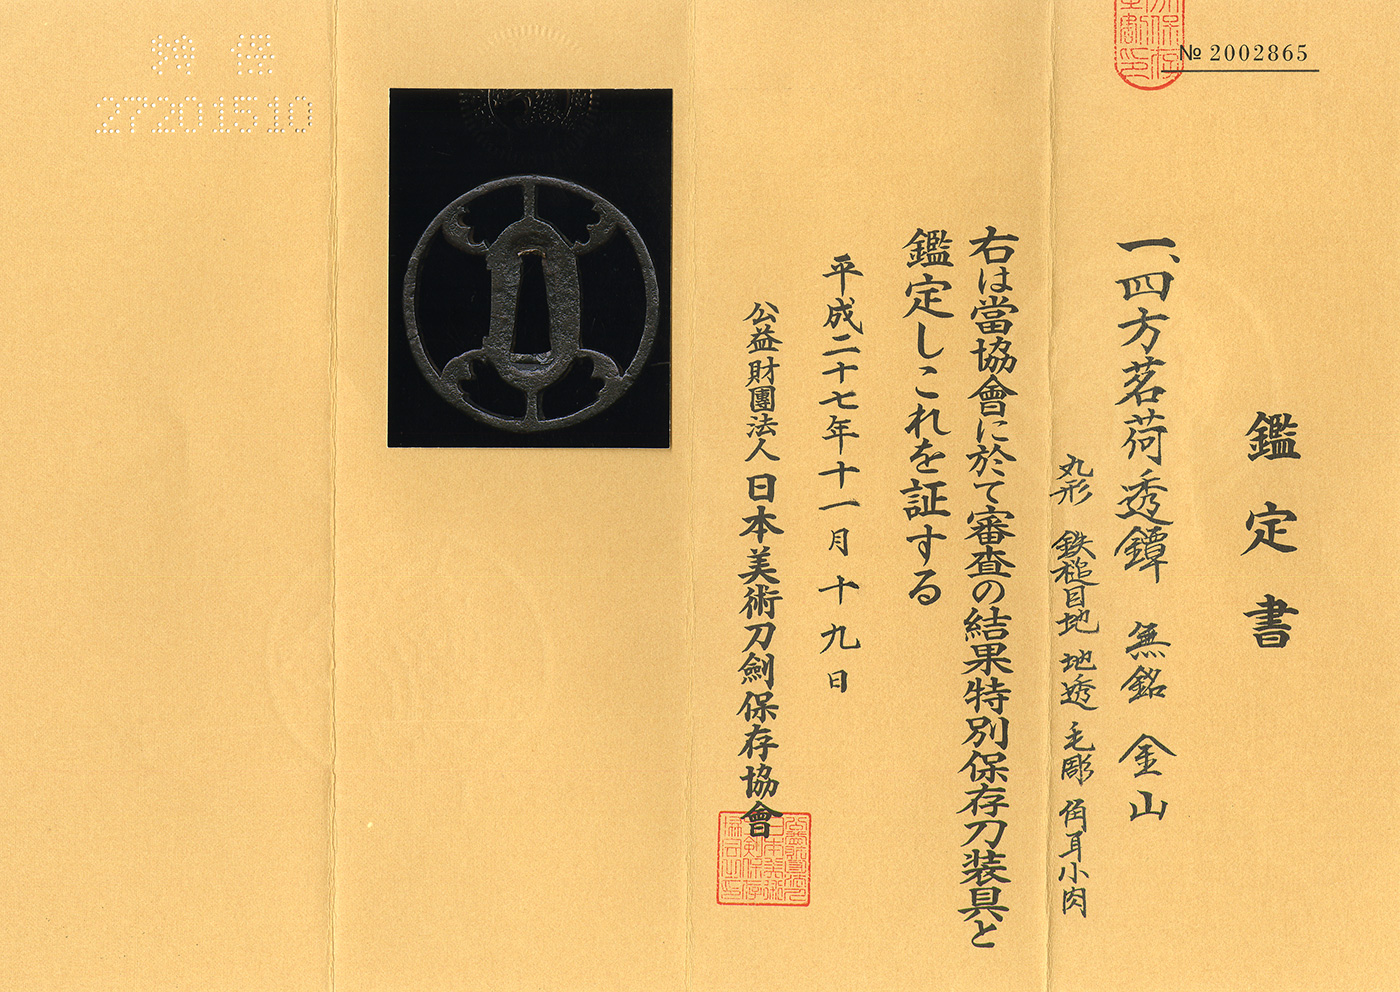 № 2002865
鑑定書
一、四方茗荷透鐔 無銘 金山
丸形 鉄槌目地 地透 毛彫 角耳小肉
右は當協會に於て審査の結果特別保存刀装具と
鑑定しこれを証する
平成二十七年十一月十九日
公益財團法人 日本美術刀劍保存協會
特保
27201510